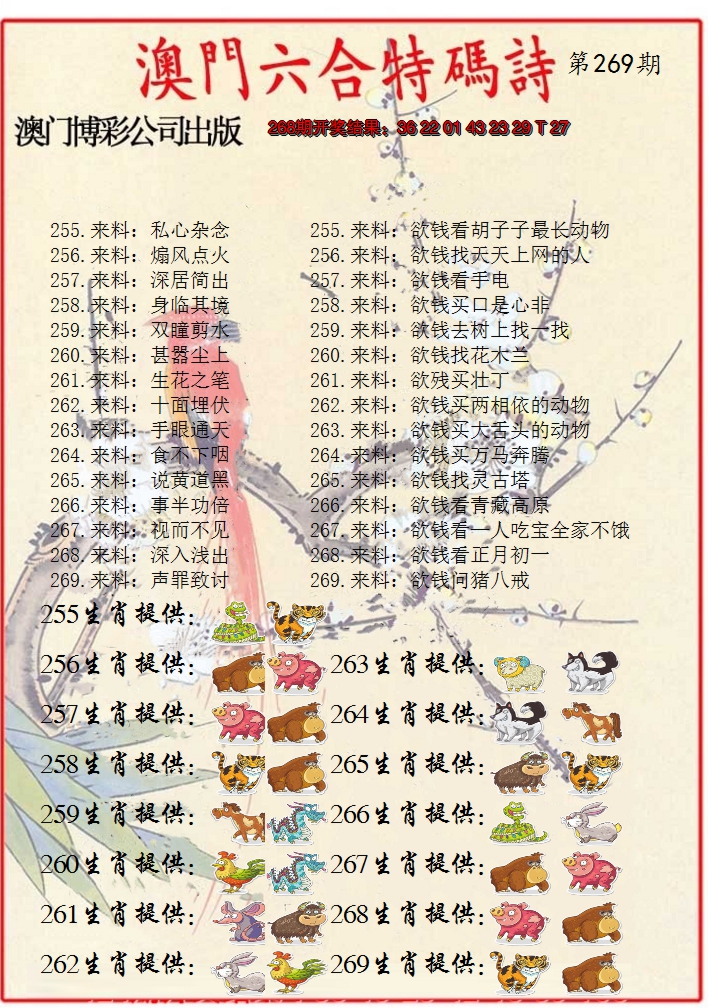 澳門六合特碼詩 第269期
澳门博彩公司出版 268期开奖结果：36 22 01 43 23 29 T 27
255.来料：私心杂念 255.来料：欲钱看胡子子最长动物
256.来料：煽风点火 256.来料：欲钱找天天上网的人
257.来料：深居简出 257.来料：欲钱看手电
258.来料：身临其境 258.来料：欲钱买口是心非
259.来料：双瞳剪水 259.来料：欲钱去树上找一找
260.来料：甚嚣尘上 260.来料：欲钱找花木兰
261.来料：生花之笔 261.来料：欲残买壮丁
262.来料：十面埋伏 262.来料：欲钱买两相依的动物
263.来料：手眼通天 263.来料：欲钱买大舌头的动物
264.来料：食不下咽 264.来料：欲钱买万马奔腾
265.来料：说黄道黑 265.来料：欲钱找灵古塔
266.来料：事半功倍 266.来料：欲钱看青藏高原
267.来料：视而不见 267.来料：欲钱看一人吃宝全家不饿
268.来料：深入浅出 268.来料：欲钱看正月初一
269.来料：声罪致讨 269.来料：欲钱问猪八戒
255生肖提供：
256生肖提供： 263生肖提供：
257生肖提供： 264生肖提供：
258生肖提供： 265生肖提供：
259生肖提供： 266生肖提供：
260生肖提供： 267生肖提供：
261生肖提供： 268生肖提供：
262生肖提供： 269生肖提供：